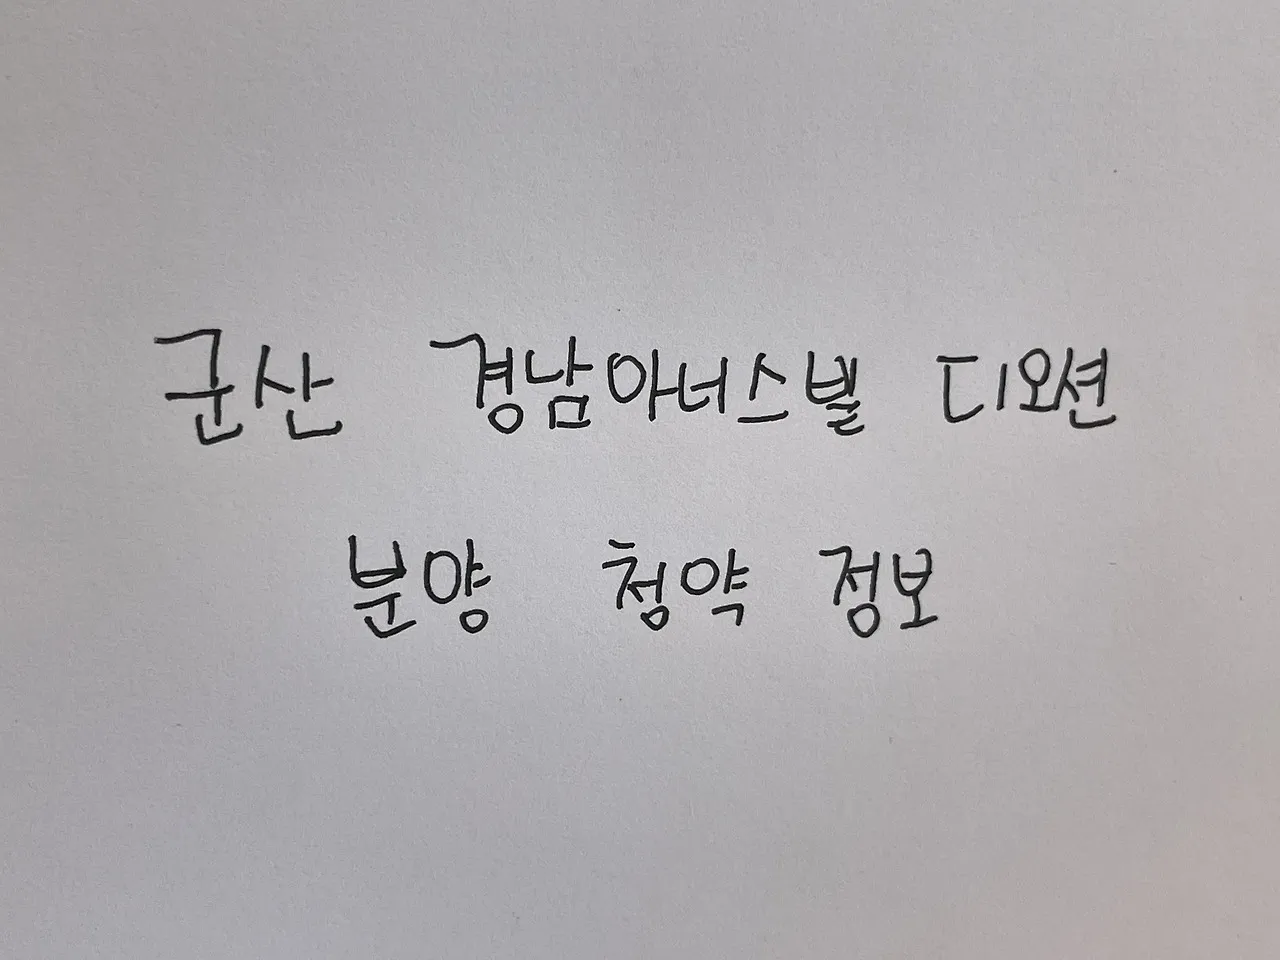 군산 경남아너스빌 디오션
분양 청약 정보